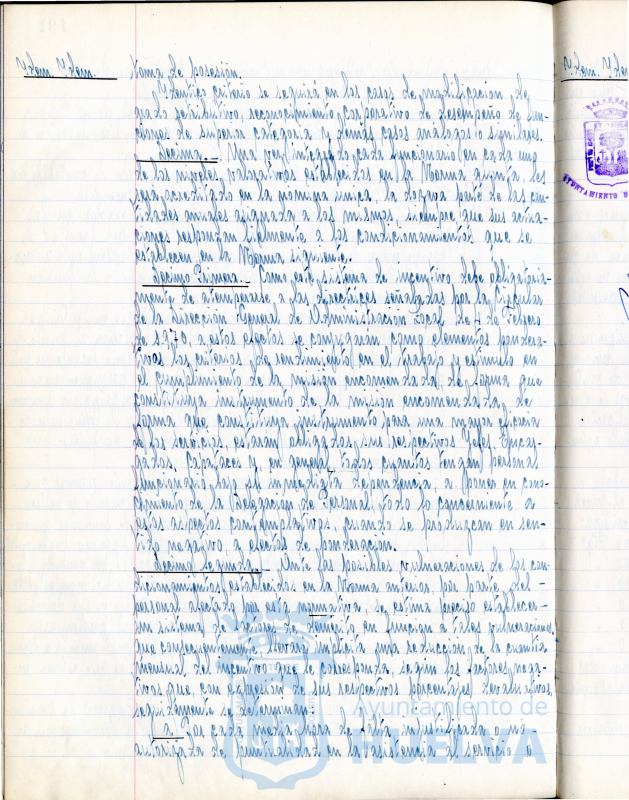 Idem. Idem.
toma de posesión.
Idéntico criterio se seguirá en los casos de modificación de
grado retributivo, reconocimiento corporativo de desempeño de fun-
ciones de superior categoría y demás casos análogos o similares.
Décima.- Una vez integrado cada funcionario en cada uno
de los niveles valorativos establecidos en la Norma quinta, les
será acreditado en la nómina única, la dozava parte de las can-
tidades anuales asignada a los mismos, siempre que sus actua-
ciones respondan fielmente a los condicionamientos que se
establecen en la Norma siguiente.
Décimo Primera.- Como este sistema de incentivo debe obligatoria-
mente de atemperarse a las directrices señaladas por la Circular
de la Dirección General de Administración Local de 4 de Febrero
de 1.970, a estos efectos se configuran como elementos pondera-
tivos los criterios de rendimiento en el trabajo y estímulo en
el cumplimiento de la misión encomendada, de forma que
constituya instrumento de la misión encomendada, de
forma que constituya instrumento para una mayor eficacia
de los servicios, estarán obligados sus respectivos Jefes, Encar-
gados, Capataces y en general todos cuantos tengan personal
funcionario bajo su inmediata dependencia, a poner en cono-
cimiento de la Delegación de Personal, todo lo concerniente a
estos aspectos contemplativos, cuando se produzcan en sen-
tido negativo, a efectos de ponderación.
Décimo Segunda.- Ante las posibles vulneraciones de los con-
dicionamientos establecidos en la Norma anterior, por parte del-
personal afectado por esta normativa, se estima preciso establecer-
un sistema de sanciones de demérito en función a tales vulneraciones
que consecuentemente, llevará implícita una reducción de la cuantía
mensual del incentivo que le corresponda, según los factores nega-
tivos que, con expresión de sus respectivos porcentajes devaluativos,
seguidamente se determinan:
a. Por cada media hora de falta injustificada o ni-
autorizada de puntualidad en la asistencia al servicio o
Idem. Ide
AYUNTAMIENTO D
Ayuntamiento de
HUELVA